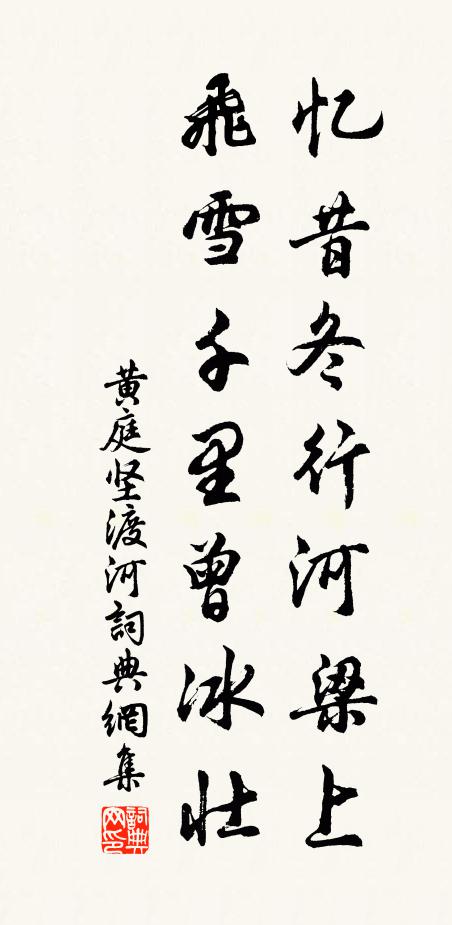 忆昔冬行河梁上
飛雪千里曾冰壮
黄庭坚渡河詞典網集
詞典网印